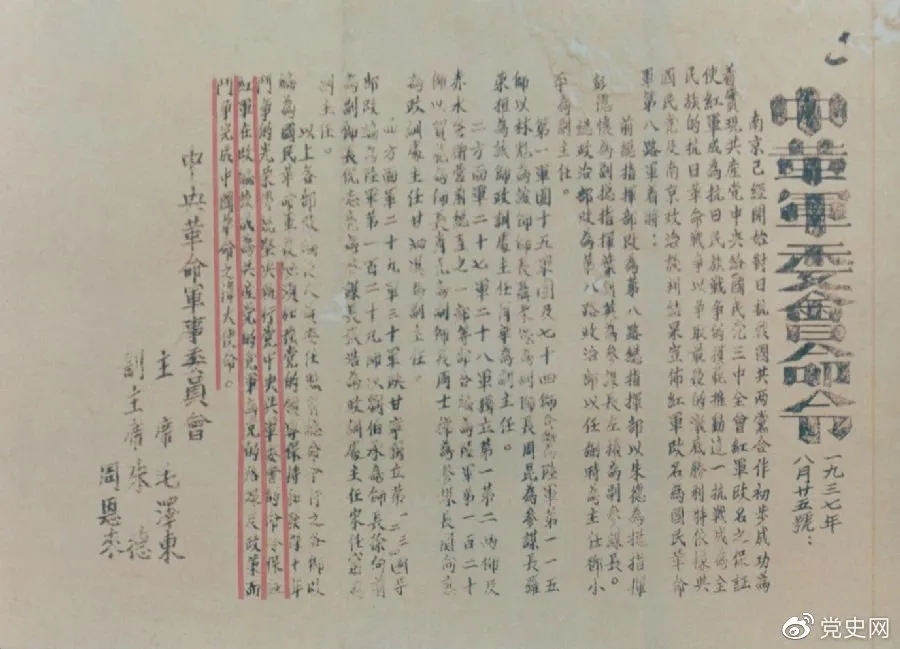 中革軍委會命令
一九三七年
八月廿五號：
南京已經開始對日抗戰國共兩黨合作初步成功為
着實現共產党中央給國民党三中全會紅軍改名之保証
使紅軍成為抗日民族戰争的模範推動這一抗戰成為全
民族的抗日革命戰争以争取最後的澈底勝利特依據與
國民党及南京政治談判結果宣佈紅軍改名為國民革命
軍第八路軍着將：
前總指揮部改為第八路總指揮部以朱德為總指揮
彭德懷為副總指揮葉劍英為參謀長左權為副參謀長。
總政治部改為第八路政治部以任弼時為主任鄧小
平為副主任。
第一軍團十五軍團及七十四師合編為陸軍第一一五
師以林彪為該師師長聶榮臻為副師長周昆為參謀長羅
榮桓為該師政訓處主任蕭華為副主任。
二方面軍二十七軍二十八軍獨立第一第二兩師及
赤水警衛營前總直之一部等部合編為陸軍第一百二十
師以賀龍為師長蕭克為副師長周士第為參謀長關向應
為政訓處主任甘泗淇為副主任。
四方面軍二十九軍三十軍陝甘寧獨立第一二三四等
部改編為陸軍第一百二十九師以劉伯承為師長徐向前
為副師長倪志亮為參謀長張浩為政訓處主任宋任窮為
副主任。
以上各部改編
編為國民革命軍後必須加強党的領導保持和發揚十年
鬥爭的光榮傳統堅決執行党中央與軍委會的命令保証
紅軍在改編後成為共產党的党軍為党的路線及政策而
鬥爭完成中國革命之偉大使命。
中央革命軍事委員會
主席毛澤東
副主席朱德
周恩來
党史网